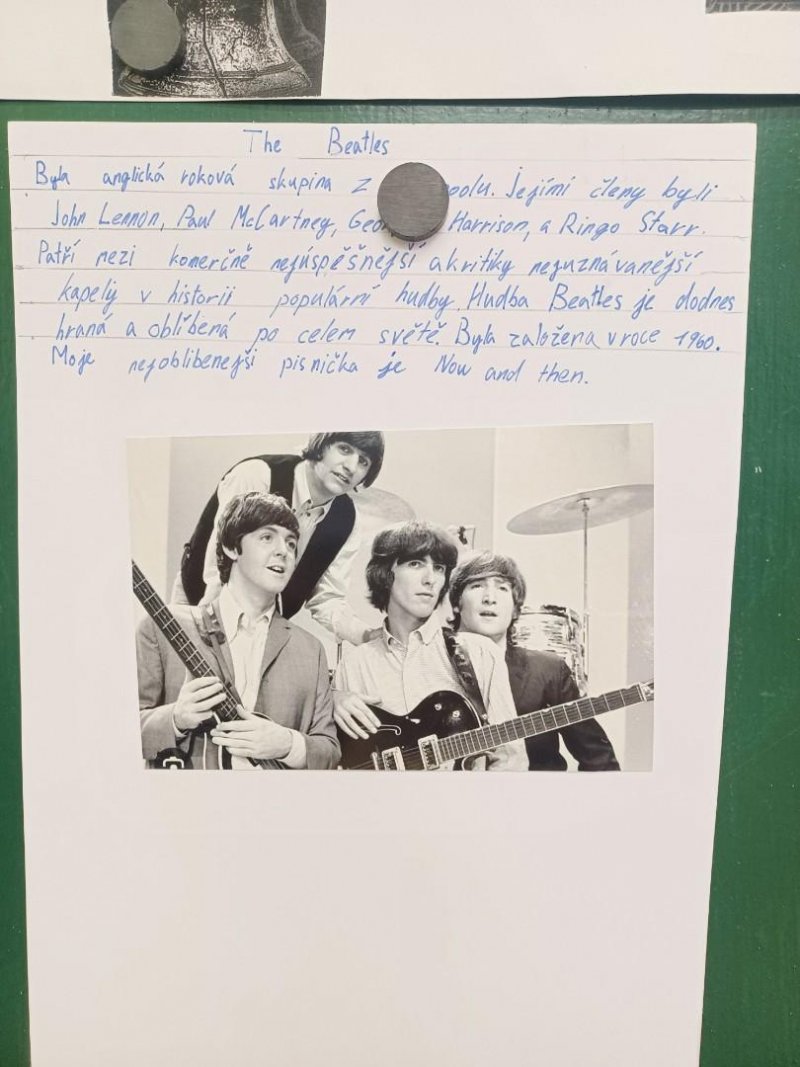 The Beatles
Byla anglická roková skupina z oolu. Jejími členy byli
John Lennon, Paul McCartney, Geo Harrison, a Ringo Starr.
Patří mezi komerčně nejúspěšnější a kritiky nejuznávanější
kapely v historii populární hudby. Hudba Beatles je dodnes
hraná a oblíbená po celem světě. Byla založena v roce 1960.
Moje nejoblibenejši pisnička je Now and then.